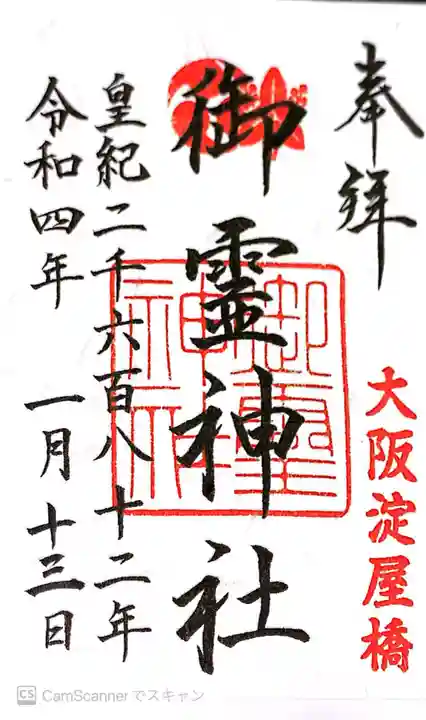 奉拝
大阪淀屋橋
御霊神社
御霊神社
皇紀二千六百八十二年
令和四年 一月十三日
CS CamScannerでスキャン